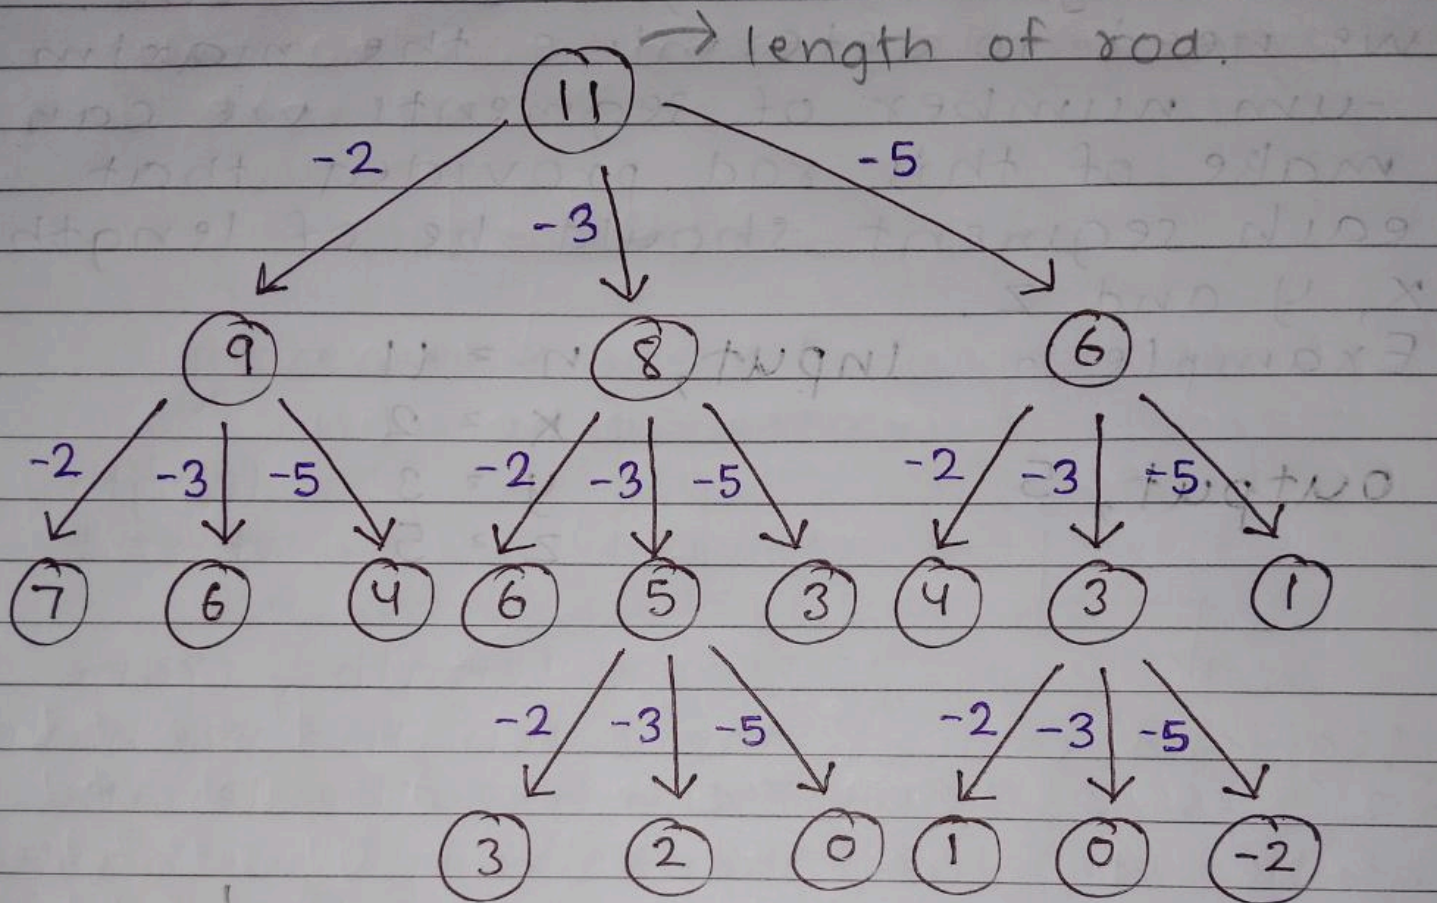 11 → length of rod.
-2 -3 -5
9 8 6
-2 -3 -5 -2 -3 -5 -2 -3 -5
7 6 4 6 5 3 4 3 1
-2 -3 -5 -2 -3 -5
3 2 0 1 0 -2